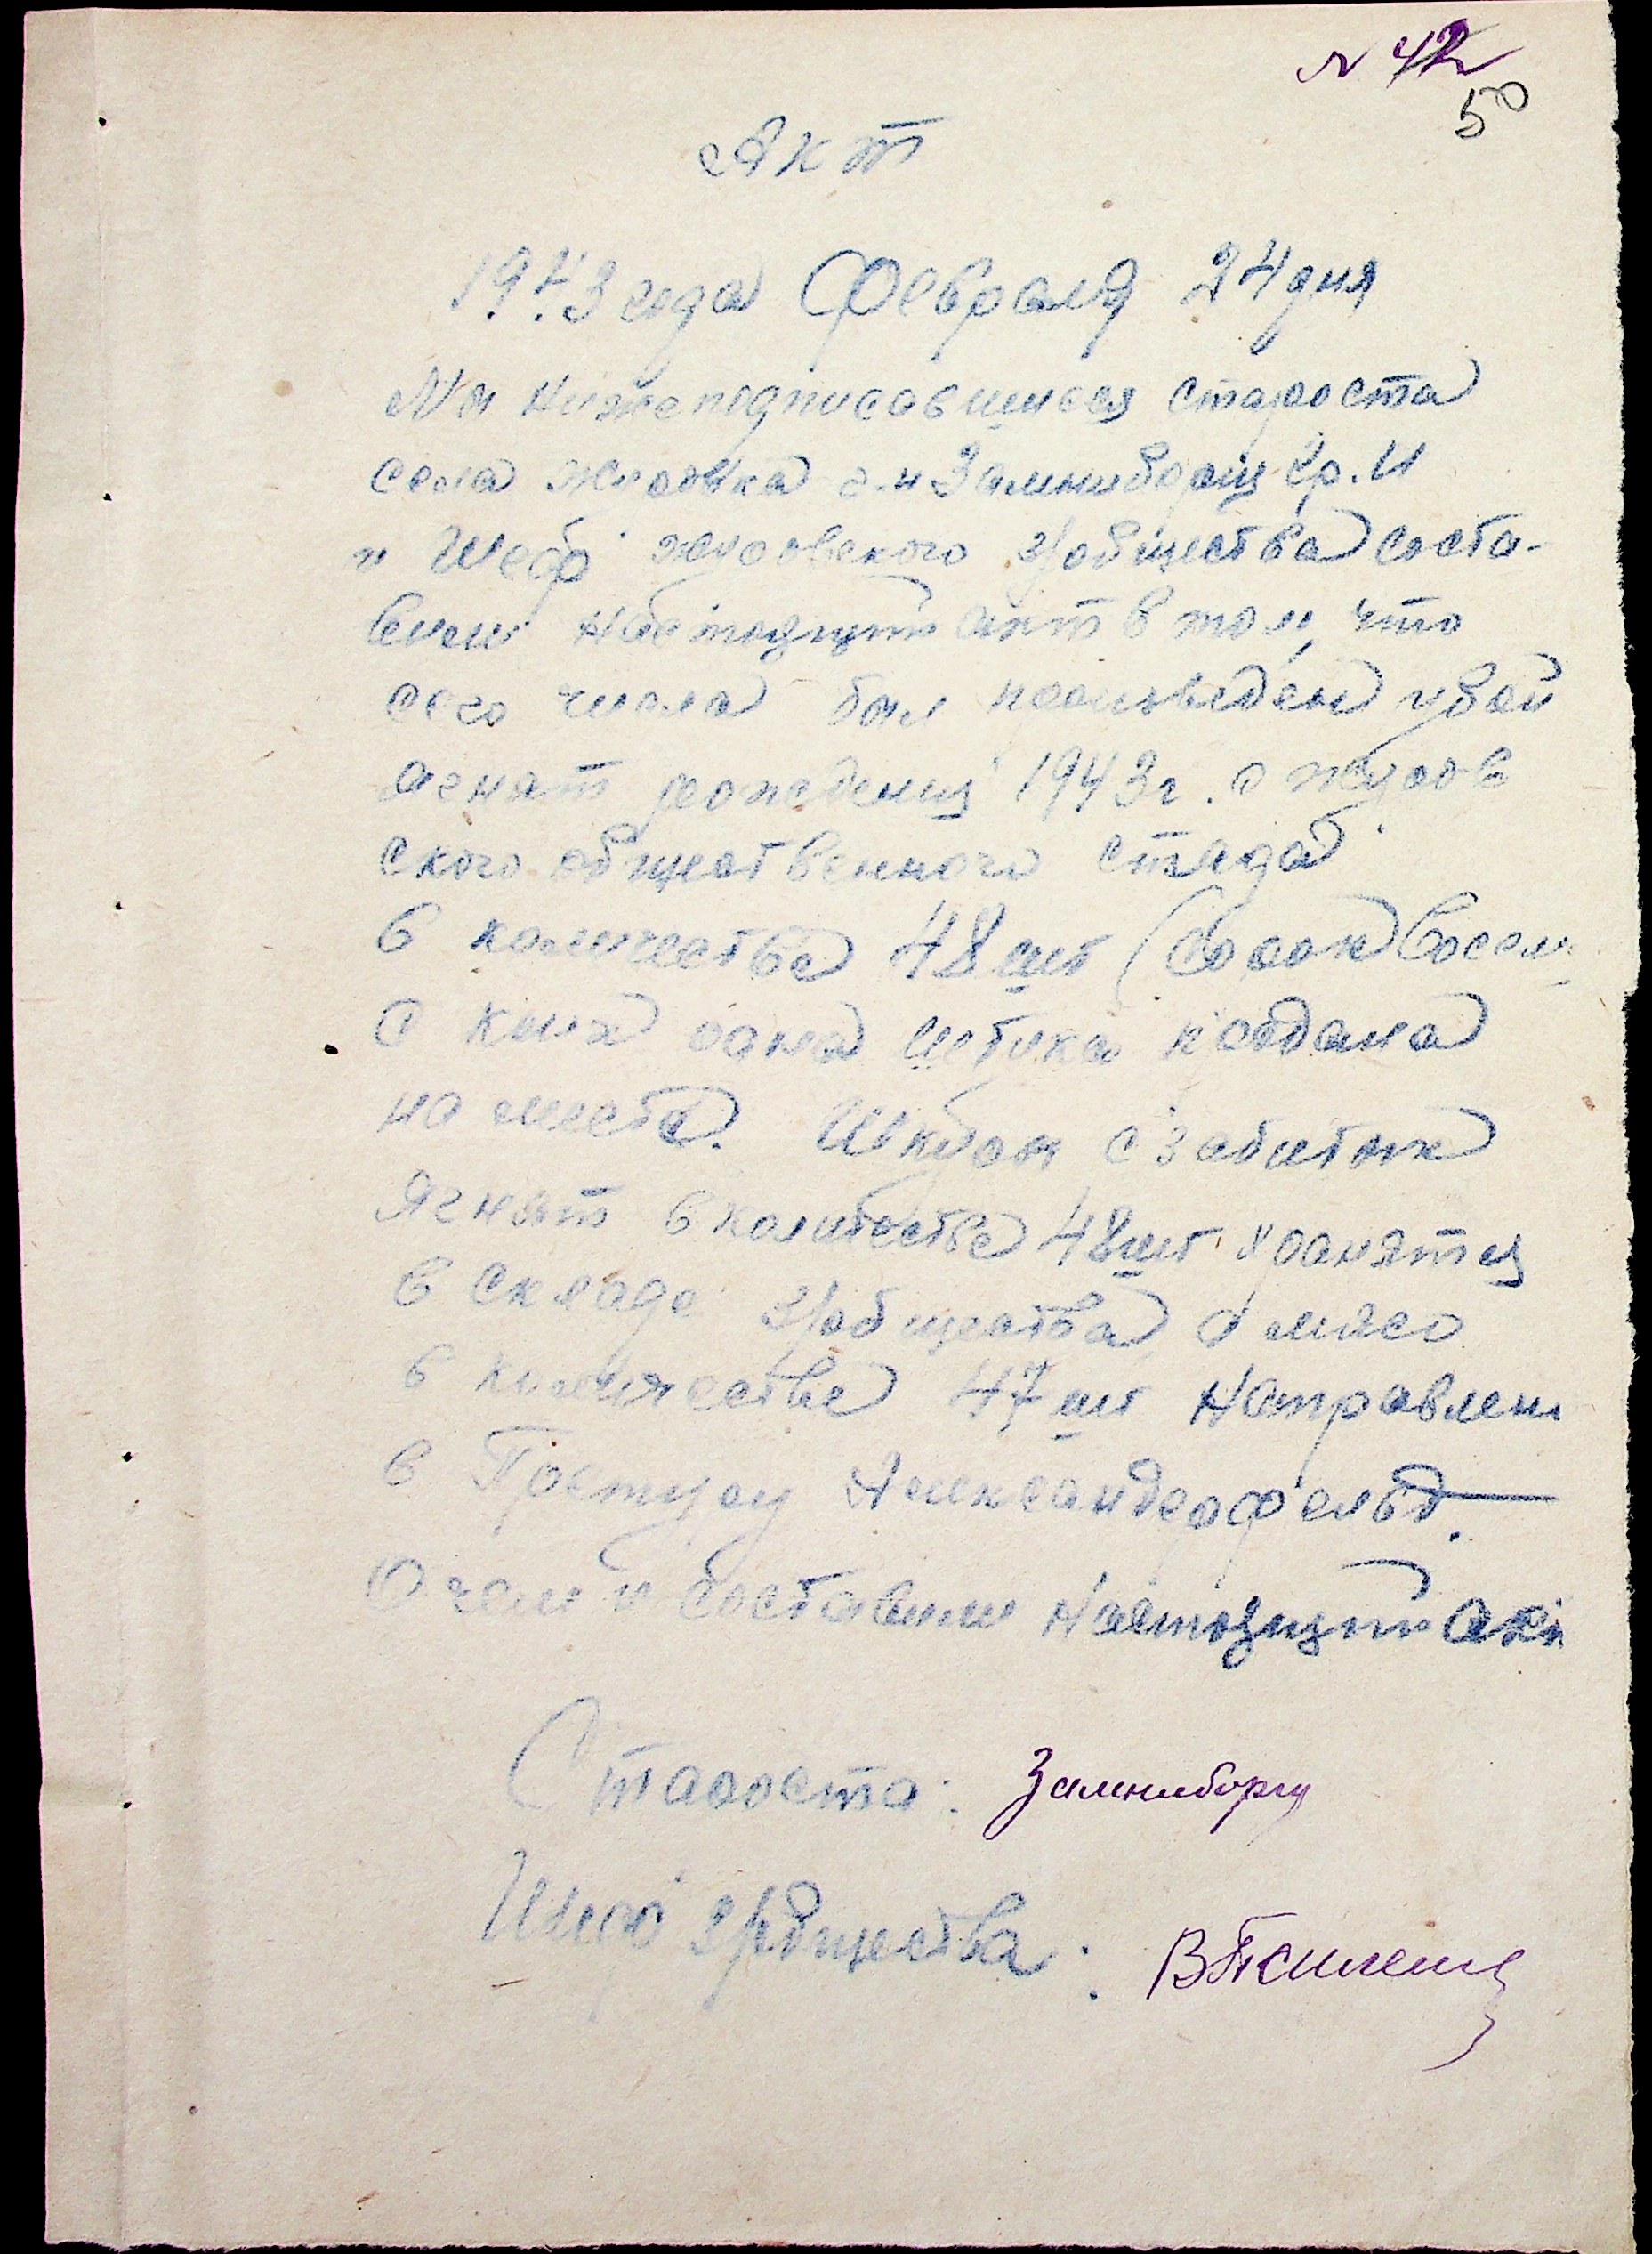 № 42
50
Акт
1943 года Февраля 24 дня
Мы нижеподписавшиеся староста
села Журовка г-н Замниборщ Гр. И
и Шеф журовского г/общества соста-
вили настоящий акт в том, что
сего числа был произведен убой
ягнят рождения 1943 г. с журов
ского общественного стада
в количестве 48 шт (сорок восем
с ких одна штука продана
на месте. Шкуры с забитых
Ягнят в количестве 48 шт хранятся
в складе г/общества а мясо
в количестве 47 шт направлен
в Александерфельд.
О чем и составили настоящий акт
Староста: Замниборщ
Шеф г/общества: